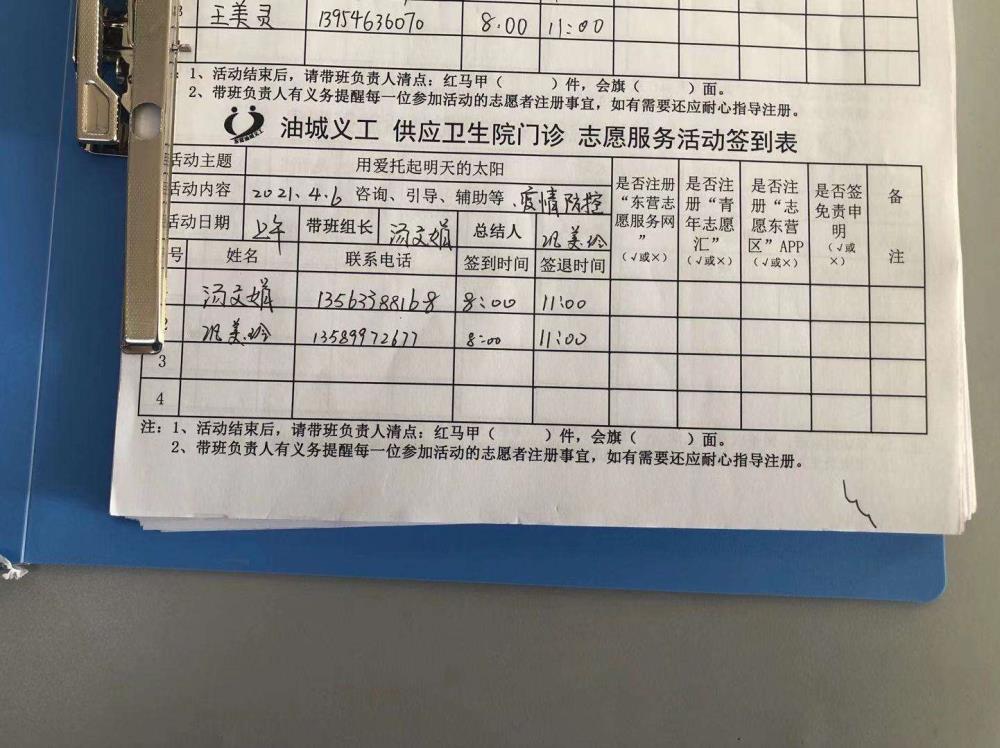 王美灵 13954636070 8:00 11:00
1、活动结束后，请带班负责人清点：红马甲（ ）件，会旗（ ）面。
2、带班负责人有义务提醒每一位参加活动的志愿者注册事宜，如有需要还应耐心指导注册。
油城义工 供应卫生院门诊 志愿服务活动签到表
活动主题 用爱托起明天的太阳 是否注册“东营志愿服务网”（√或×） 是否注册“青年志愿汇”（√或×） 是否注册“志愿东营区”APP（√或×） 是否签免责申明（√或×） 备注
活动内容 2021.4.6 咨询、引导、辅助等、疫情防控
活动日期 上午 带班组长 汤文娟 总结人 巩美玲
号 姓名 联系电话 签到时间 签退时间
汤文娟 13563388168 8:00 11:00
2 巩美玲 13589972677 8:00 11:00
3
4
注：1、活动结束后，请带班负责人清点：红马甲（ ）件，会旗（ ）面。
2、带班负责人有义务提醒每一位参加活动的志愿者注册事宜，如有需要还应耐心指导注册。